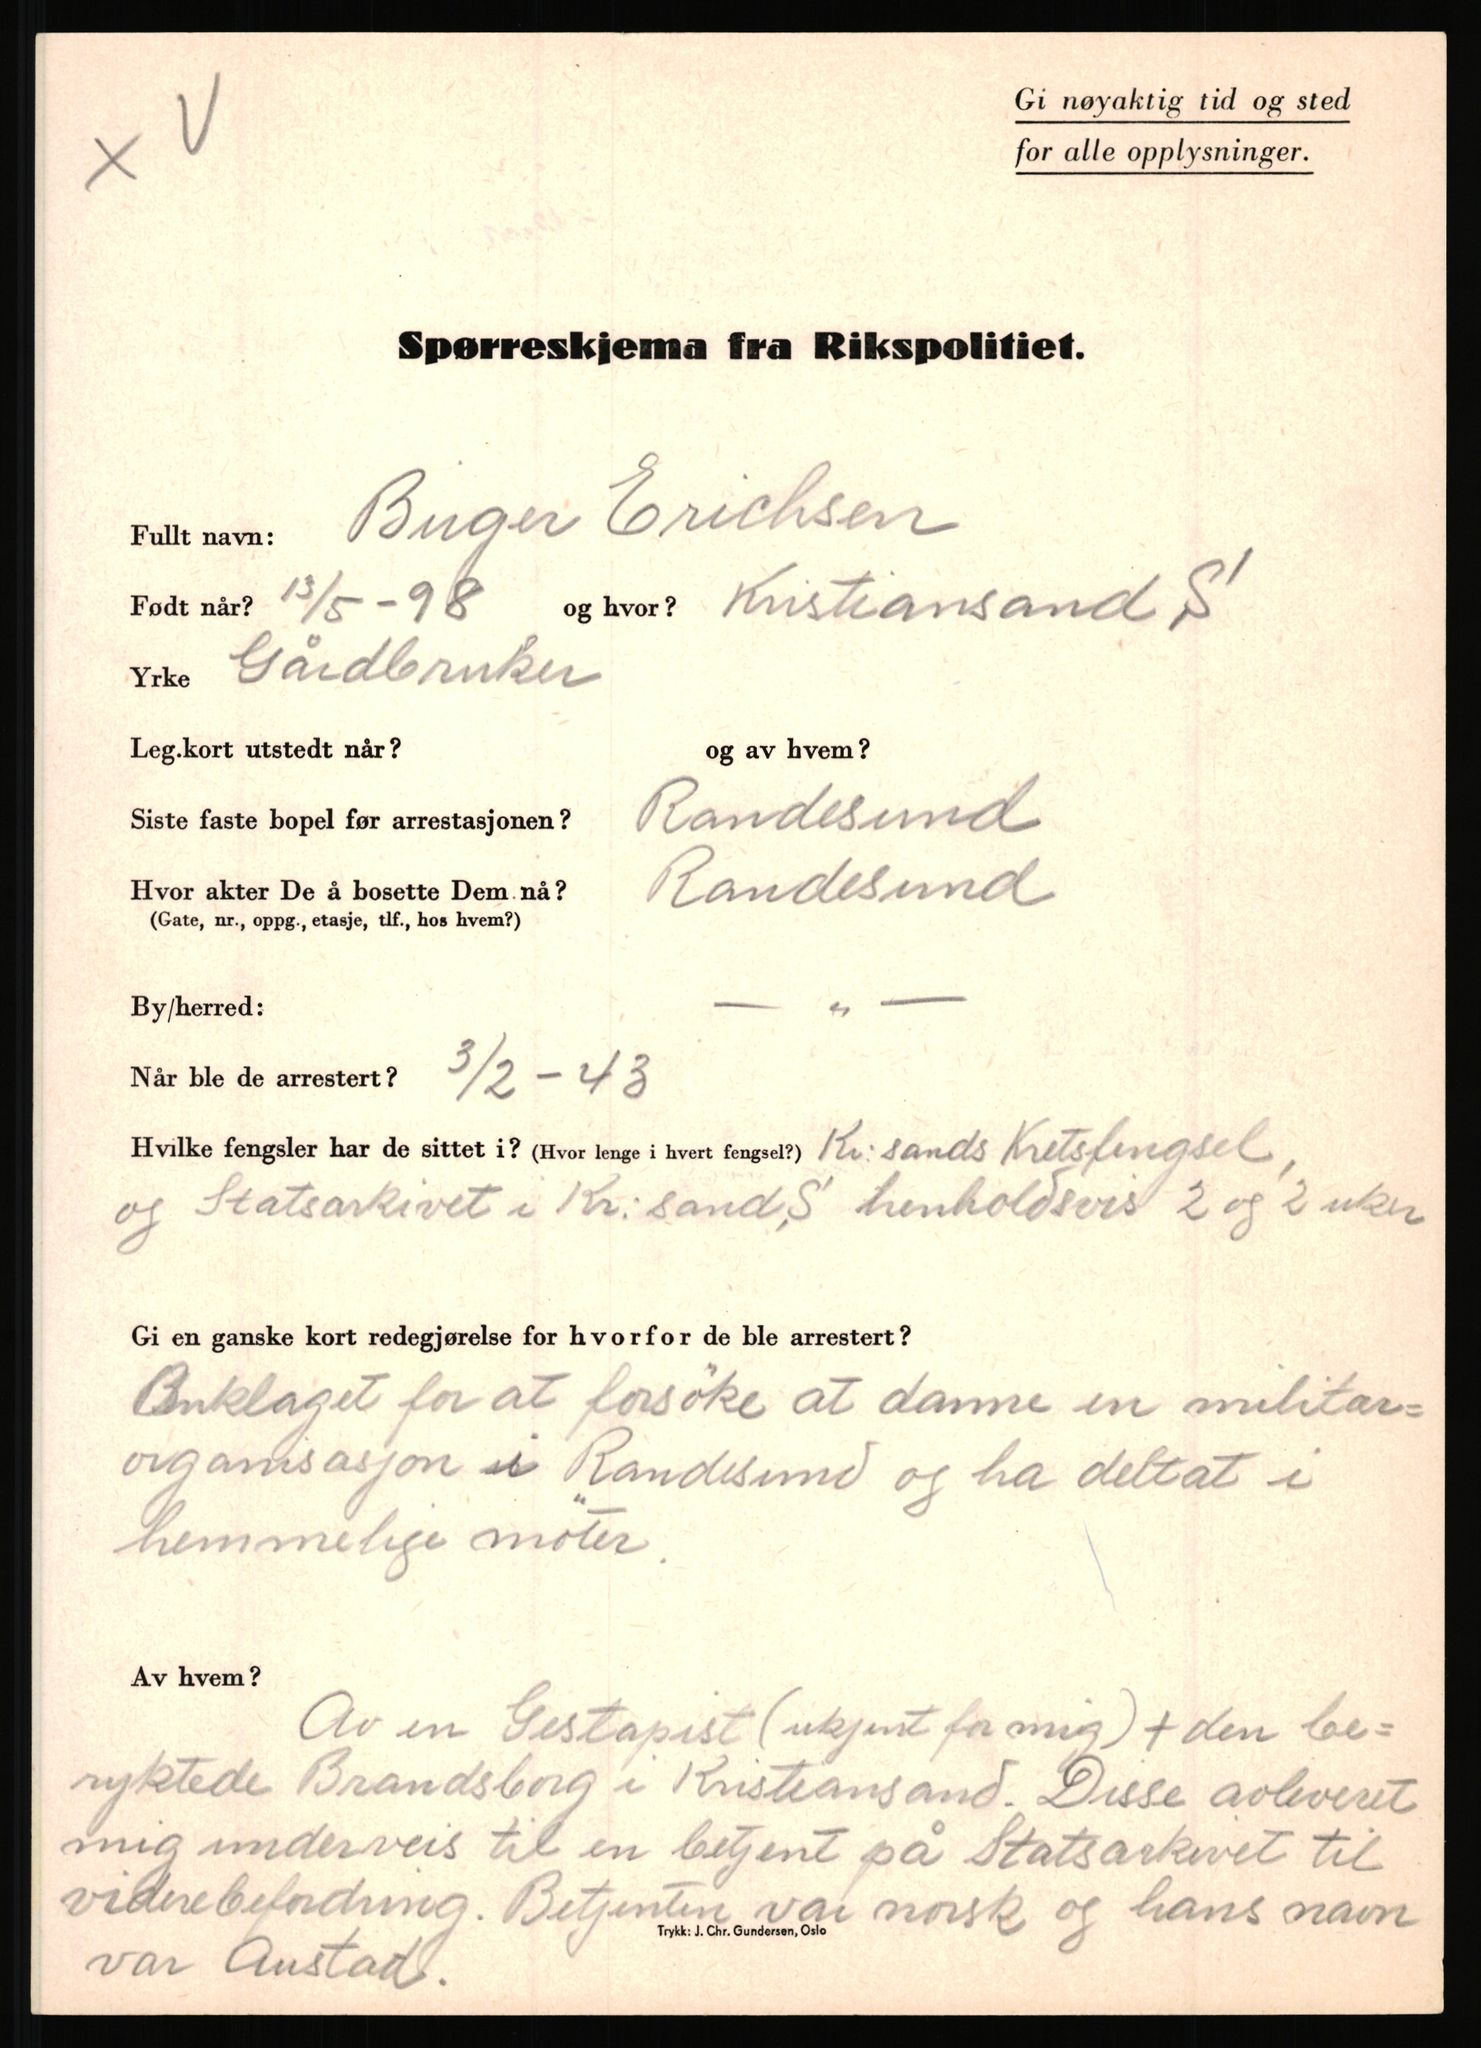 x V
Gi nøyaktig tid og sted
for alle opplysninger.
Spørreskjema fra Rikspolitiet.
Fullt navn: Birger Erichsen
Født når? 13/5-98 og hvor? Kristiansand S
Yrke Gårdbruker
Leg.kort utstedt når? og av hvem?
Siste faste bopel før arrestasjonen? Randesund
Hvor akter De å bosette Dem nå? Randesund
(Gate, nr., oppg., etasje, tlf., hos hvem?)
By/herred: — „ —
Når ble de arrestert? 3/2-43
Hvilke fengsler har de sittet i? (Hvor lenge i hvert fengsel?) Kr:sands Kretsfengsel,
og Statsarkivet i Kr:sand,S henholdsvis 2 og 2 uker
Gi en ganske kort redegjørelse for hvorfor de ble arrestert?
Anklaget for at forsöke at danne en militær=
organisasjon i Randesund og ha deltat i
hemmelige möter.
Av hvem?
Av en Gestapist (ukjent for mig) + den be=
ryktede Brandsborg i Kristiansand. Disse avleveret
mig underveis til en betjent på Statsarkivet til
viderebefordring. Betjenten var norsk og hans navn
Trykk: J. Chr. Gundersen, Oslo
var Austad.